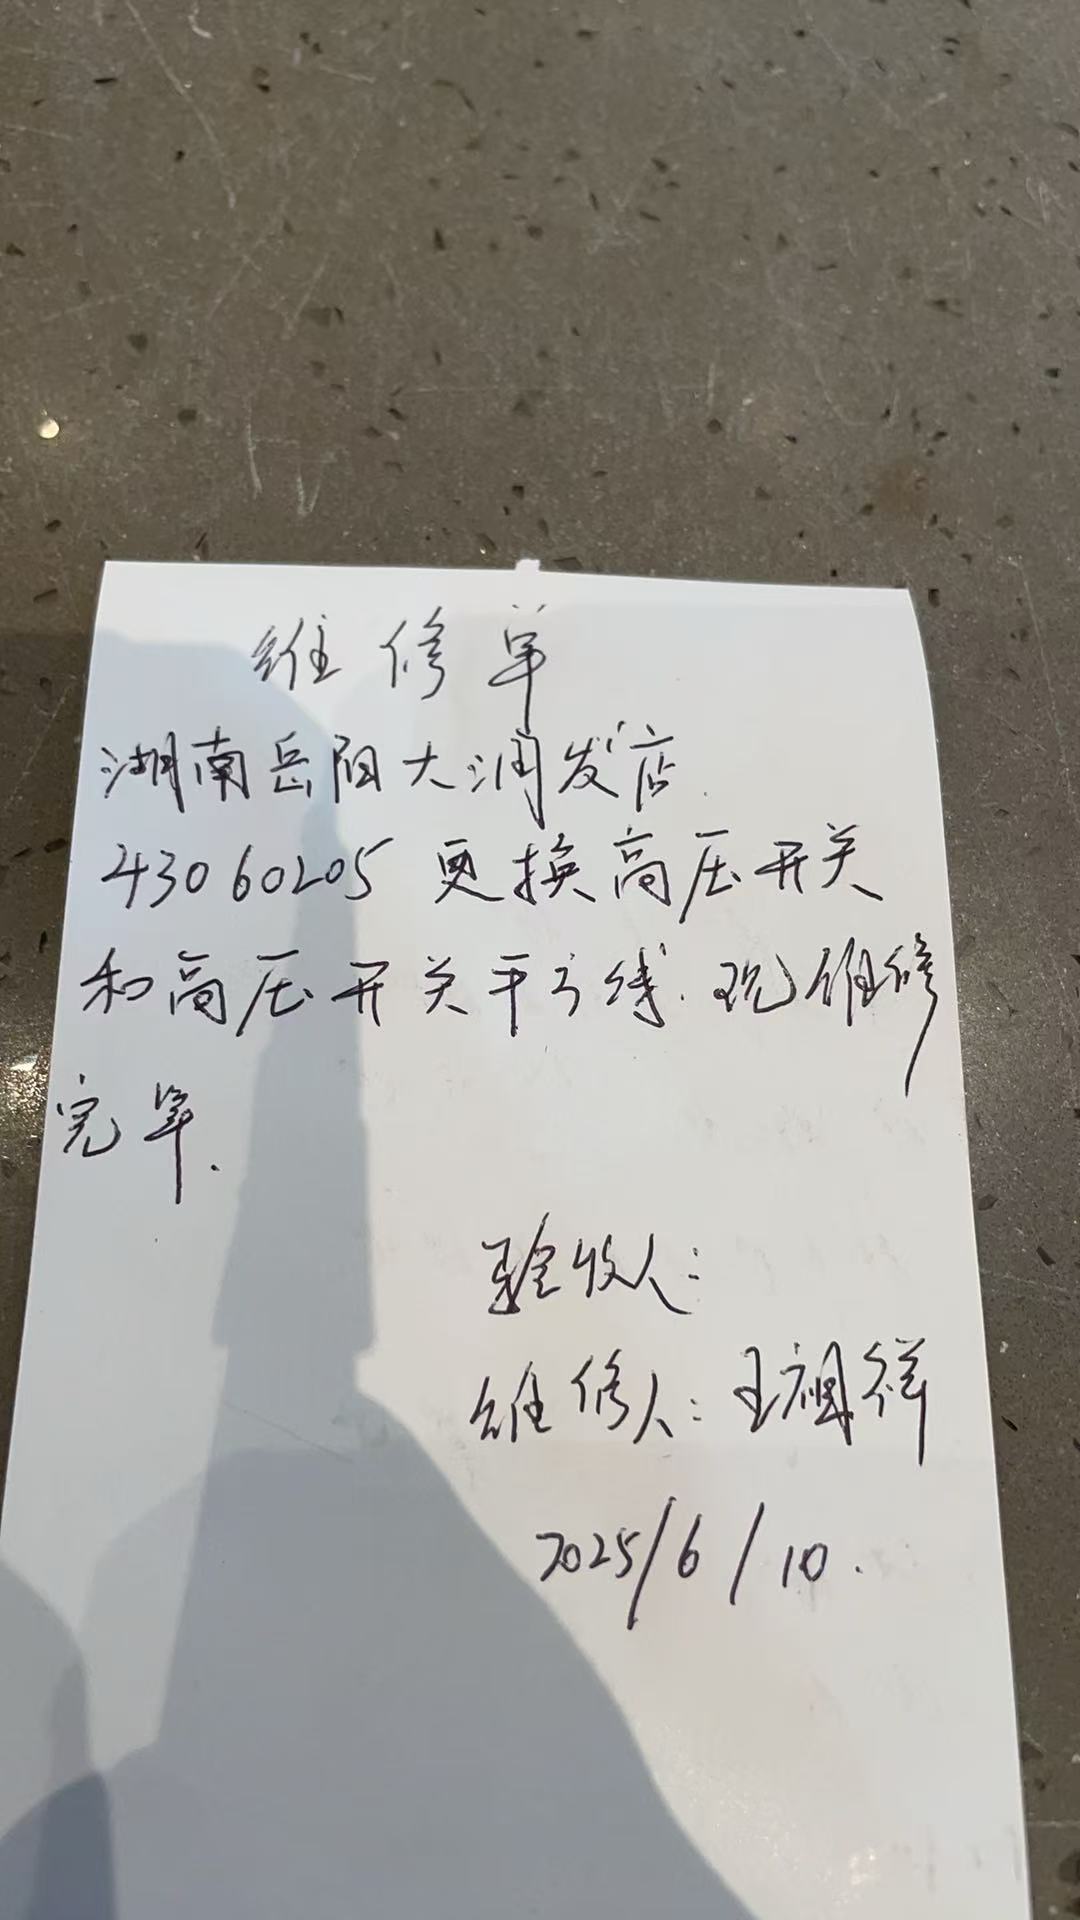 维修单
湖南岳阳大润发店.
43060205 更换高压开关
和高压开关干方线. 现维修
完毕.
验收人:
维修人: 王祖祥
2025/6/10.